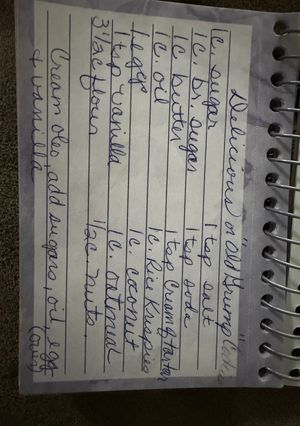 Delicious or "Old Grump"
1c. sugar 1 tsp salt
1c. br. sugar 1 tsp soda
1c. butter 1 tsp Cream of tartar
1c. oil 1c. Rice Krispies
1 egg 1c. coconut
1 tsp vanilla 1c. oatmeal
3 1/2c flour 1/2c nuts
Cream oleo, add sugars, oil, egg
+ vanilla (over)